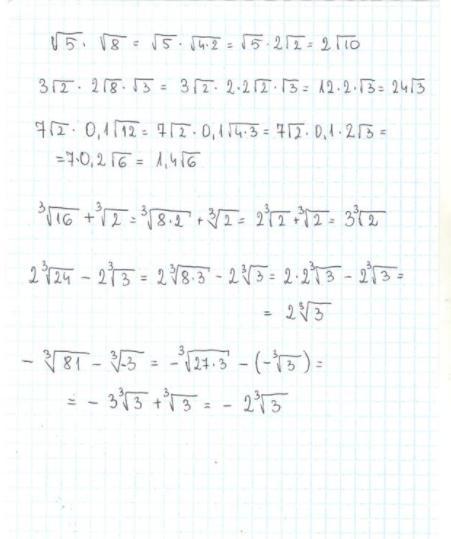 √5 · √8 = √5 · √4·2 = √5 · 2√2 = 2√10
3√2 · 2√8 · √3 = 3√2 · 2·2√2 · √3 = 12·2·√3 = 24√3
7√2 · 0,1√12 = 7√2 · 0,1√4·3 = 7√2 · 0,1 · 2√3 =
= 7·0,2√6 = 1,4√6
∛16 + ∛2 = ∛8·2 + ∛2 = 2∛2 + ∛2 = 3∛2
2∛24 - 2∛3 = 2∛8·3 - 2∛3 = 2·2∛3 - 2∛3 =
= 2∛3
- ∛81 - ∛-3 = -∛27·3 - (-∛3) =
= - 3∛3 + ∛3 = - 2∛3